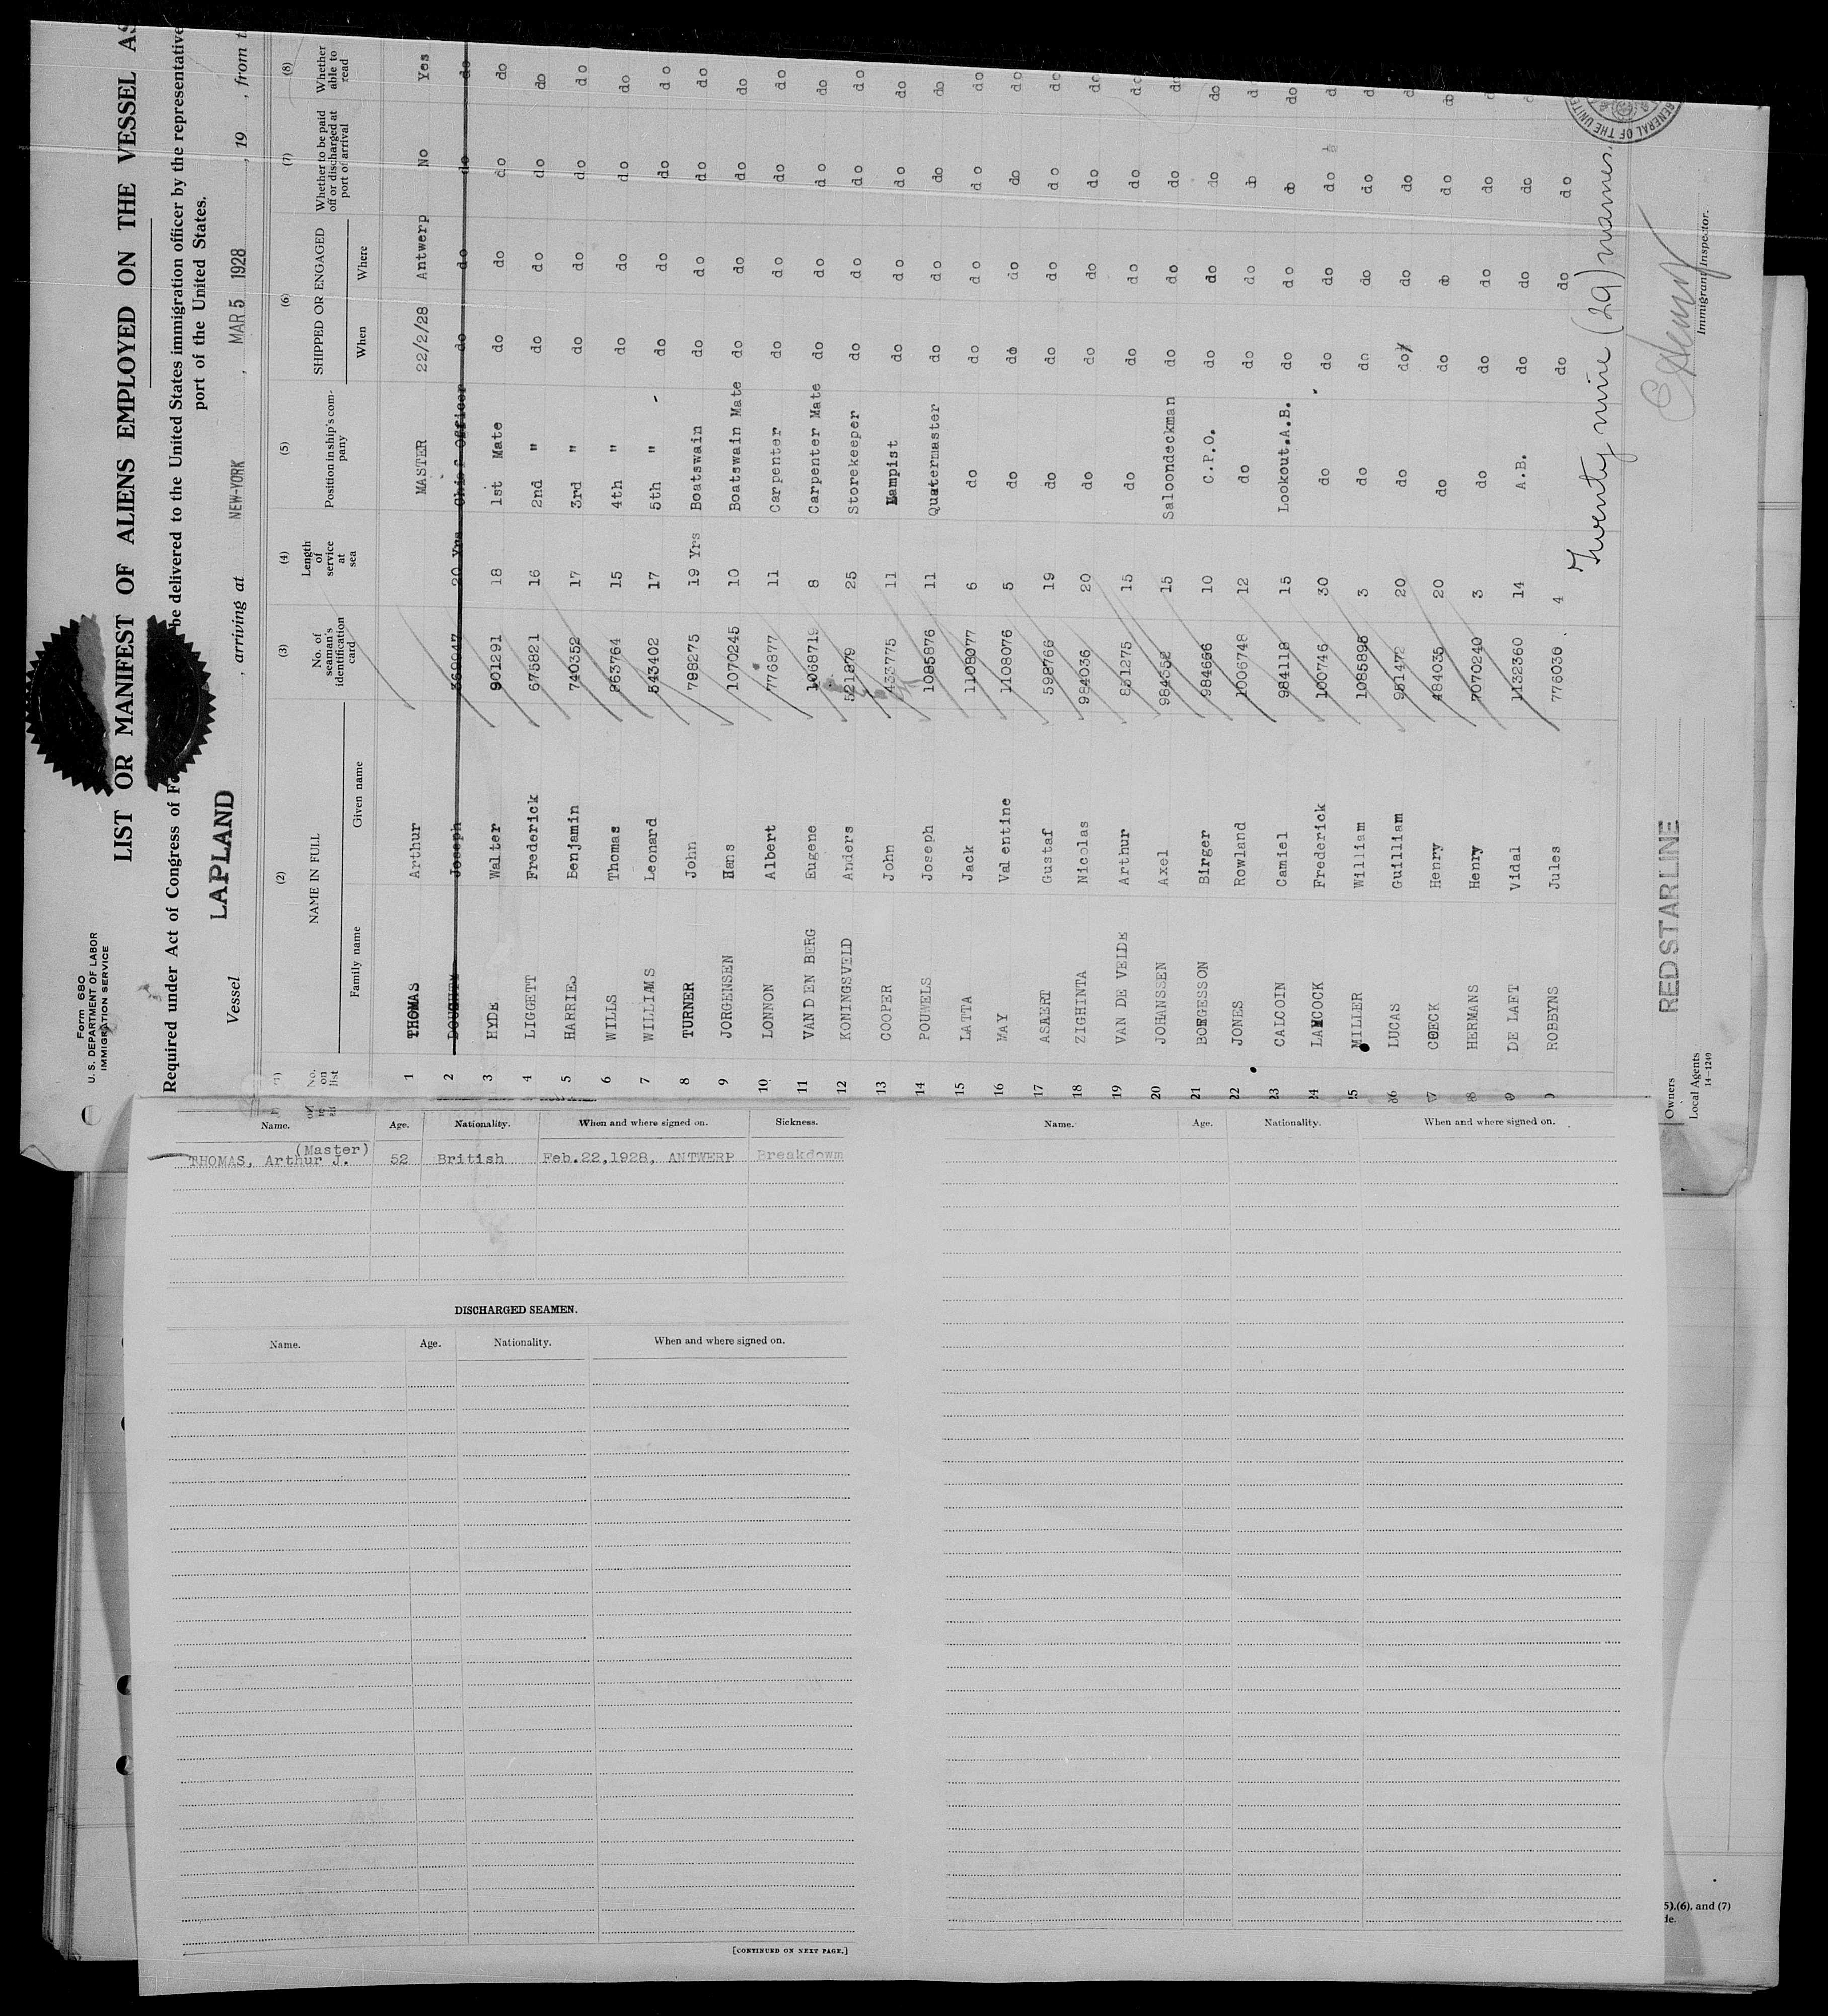 Form 680
U. S. DEPARTMENT OF LABOR
IMMIGRATION SERVICE
LIST OR MANIFEST OF ALIENS EMPLOYED ON THE VESSEL AS
Required under Act of Congress of be delivered to the United States immigration officer by the representative
port of the United States.
Vessel LAPLAND , arriving at NEW-YORK , MAR 5 1928 , 19 , from
(1) (2) (3) (4) (5) (6) (7) (8)
No. on list NAME IN FULL Family name Given name No. of seaman's identification card Length of service at sea Position in ship's company SHIPPED OR ENGAGED When Where Whether to be paid off or discharged at port of arrival Whether able to read
1 THOMAS Arthur MASTER 22/2/28 Antwerp No Yes
2 DOUGHTY Joseph 366947 20 Yrs Chief Officer do do do do
3 HYDE Walter 901291 18 1st Mate do do do do
4 LIGGETT Frederick 675821 16 2nd " do do do do
5 HARRIES Benjamin 740352 17 3rd " do do do do
6 WILLS Thomas 863764 15 4th " do do do do
7 WILLIAMS Leonard 543402 17 5th " do do do do
8 TURNER John 798275 19 Yrs Boatswain do do do do
9 JORGENSEN Hans 1070245 10 Boatswain Mate do do do do
10 LONNON Albert 776877 11 Carpenter do do do do
11 VAN DEN BERG Eugene 1068719 8 Carpenter Mate do do do do
12 KONINGSVELD Anders 521879 25 Storekeeper do do do do
13 COOPER John 433775 11 Lampist do do do do
14 POUWELS Joseph 1085876 11 Quatermaster do do do do
15 LATTA Jack 1108077 6 do do do do do
16 MAY Valentine 1108076 5 do do do do do
17 ASAERT Gustaf 598766 19 do do do do do
18 ZIGHINTA Nicolas 984036 20 do do do do do
19 VAN DE VELDE Arthur 851275 15 do do do do do
20 JOHANSSEN Axel 984352 15 Saloondeckman do do do do
21 BORGESSON Birger 984666 10 C.P.O. do do do do
22 JONES Rowland 1006748 12 do do do do do
23 CALCOIN Camiel 984118 15 Lookout.A.B. do do do do
24 LAMCOCK Frederick 100746 30 do do do do do
25 MILLER William 1085895 3 do do do do do
26 LUCAS Guilliam 951472 20 do do do do do
27 COECK Henry 484035 20 do do do do do
28 HERMANS Henry 7070240 3 do do do do do
29 DE LAET Vidal 1132360 14 A.B. do do do do
30 ROBBYNS Jules 776036 4 do do do
Twenty nine (29) names.
GENERAL OF THE UNITE
Immigrant Inspector.
Owners RED STAR LINE
Local Agents
14-1240
Name. Age. Nationality. When and where signed on. Sickness.
(Master)
THOMAS, Arthur J. 52 British Feb.22,1928, ANTWERP Breakdowm
DISCHARGED SEAMEN.
Name. Age. Nationality. When and where signed on.
[CONTINUED ON NEXT PAGE.]
Name. Age. Nationality. When and where signed on.
5),(6), and (7)
de.